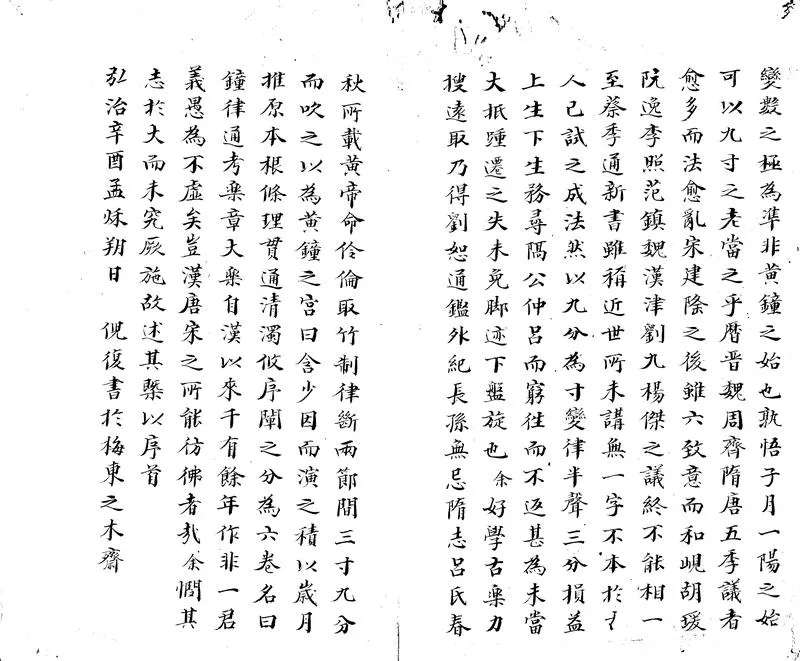 變數之極為準非黃鐘之始也孰悟子月一陽之始
可以九寸之老當之乎曆晉魏周齊隋唐五季議者
愈多而法愈亂宋建隆之後雖六致意而和峴胡瑗
阮逸李照范鎮魏漢津劉九楊傑之議終不能相一
至蔡季通新書雖稱近世所未講無一字不本於
人已試之成法然以九分為寸變律半聲三分損益
上生下生務尋隔公仲呂而窮往而不返甚為未當
大抵踵遷之失未免脚迹下盤旋也余好學古樂力
搜遠取乃得劉恕通鑑外紀長孫無忌隋志呂氏春
秋所載黃帝命伶倫取竹制律斷兩節間三寸九分
而吹之以為黃鐘之宮曰含少因而演之積以歲月
推原本根條理貫通清濁攸序闡之分為六卷名曰
鐘律通考樂章大樂自漢以來千有餘年作非一君
義愚為不虛矣豈漢唐宋之所能彷彿者哉余憫其
志於大而未究厥施故述其槩以序首
弘治辛酉孟秌朔日 倪復書於梅東之木齋